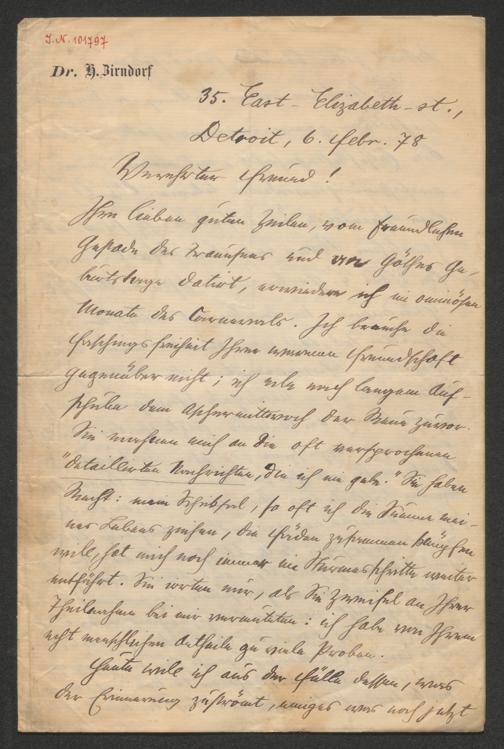 J.N. 101797
Dr. H. Zirndorf
35. East-Elizabeth-st.,
Detroit, 6. Febr. 78
Verehrter Freund!
Ihre lieben guten Zeilen, vom freundlichen
Gestade des Traunsees und von Göthes Ge-
burtstage datirt, erwiedere ich im ominösen
Monate des Carnevals. Ich brauche die
Faschingsfreiheit Ihrer warmen Freundschaft
gegenüber nicht; ich eile nach langem Auf-
schube dem Aschermittwoch der Reue zuvor.
Sie mahnen mich an die oft versprochenen
"detaillirten Nachrichten, die ich nie gebe." Sie haben
Recht: mein Schicksal, so oft ich die Summe mei-
nes Lebens ziehen, die Fäden zusammen knüpfen
will, hat mich noch immer im Sturmesschritte weiter
entführt. Sie irrten nur, als Sie Zweifel an Ihrer
Theilnahme bei mir vermuteten: ich habe von Ihrem
echt menschlichen Antheile zu viele Proben.
Heute will ich aus der Fülle dessen, was
der Erinnerung zuströmt, einiges was noch jetzt